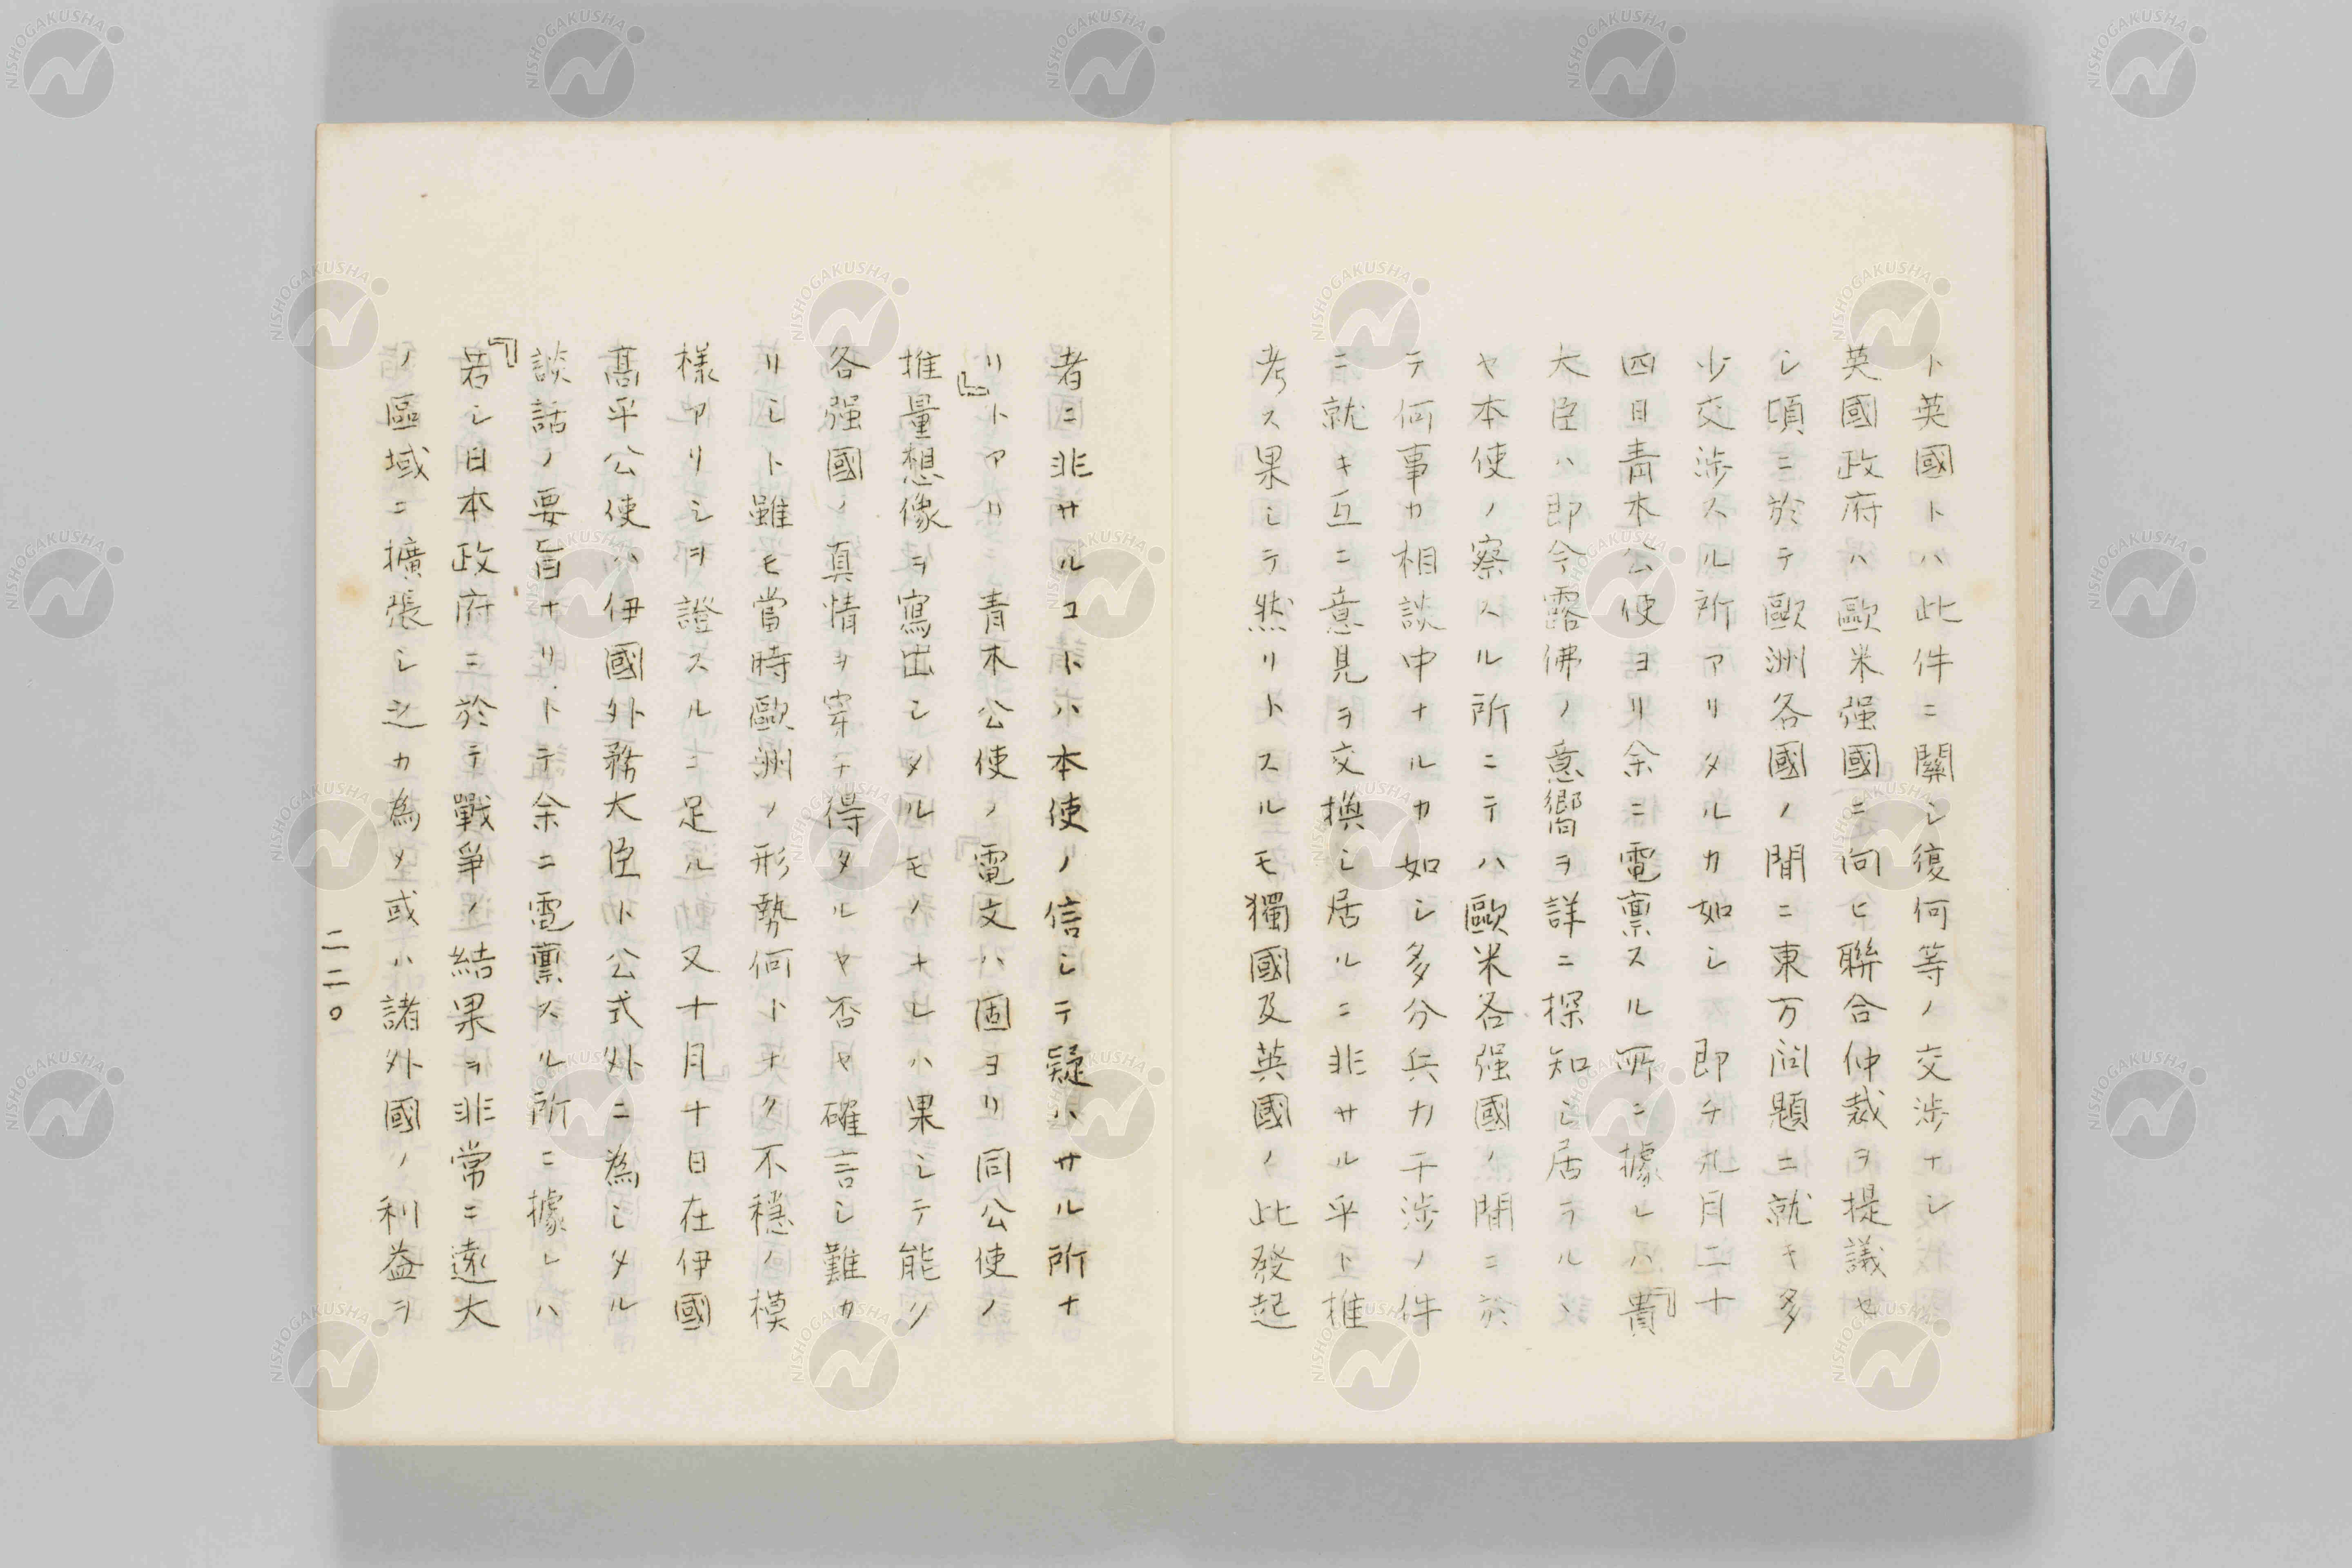 ト英國トハ此件ニ關シ復何等ノ交渉ナシ
英國政府ハ歐米强國ニ向ヒ聯合仲裁ヲ提議セ
シ頃ニ於テ歐洲各國ノ間ニ東方問題ニ就キ多
少交渉スル所アリタルカ如シ即チ九月二十
四日青木公使ヨリ余ニ電禀スル所ニ據レハ『貴
大臣ハ即今露佛ノ意嚮ヲ詳ニ探知シ居ラル丶
ヤ本使ノ察スル所ニテハ歐米各强國ノ間ニ於
テ何事カ相談中ナルカ如シ多分兵力干渉ノ件
ニ就キ互ニ意見ヲ交換シ居ルニ非サル乎ト推
考ス果シテ然リトスルモ獨國及英國ノ此發起
者ニ非サルコトハ本使ノ信シテ疑ハサル所ナ
リ』トアリ青木公使ノ電文ハ固ヨリ同公使ノ
推量想像ヲ寫出シタルモノナレハ果シテ能ク
各强國ノ真情ヲ穿チ得タルヤ否ヤ確言シ難カ
リシト雖モ當時歐洲ノ形勢何トナク不穩ノ模
樣アリシヲ證スルニ足ル又十月十日在伊國
髙平公使ハ伊國外務大臣ト公式外ニ為シタル
談話ノ要旨ナリトテ余ニ電禀スル所ニ據レハ
『若シ日本政府ニ於テ戰爭ノ結果ヲ非常ニ遠大
ノ區域ニ擴張シ之カ為メ或ハ諸外國ノ利益ヲ
二二〇
NISHOGAKUSHA